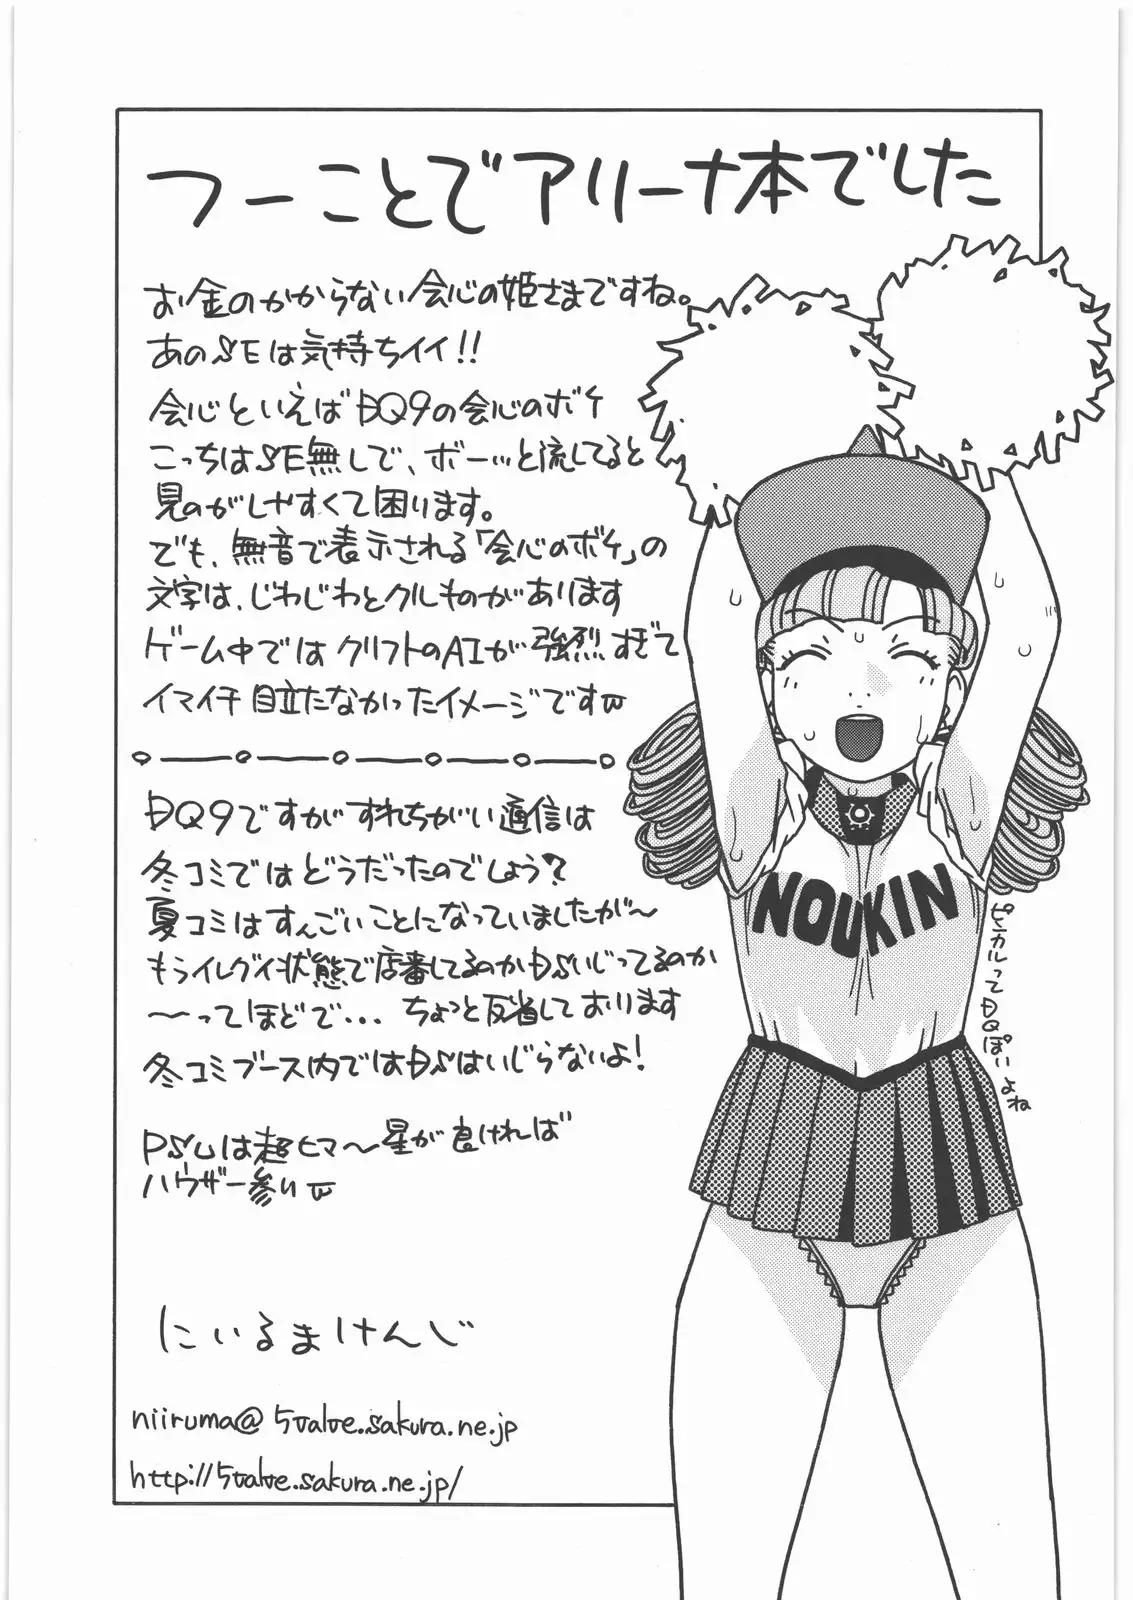 つーことでアリーナ本でした
お金のかからない会心の姫さまですね。
あのSEは気持ちイイ!!
会心といえばDQ9の会心のボケ
こっちはSE無しで、ボーッと流してると
見のがしやすくて困ります。
でも、無音で表示される「会心のボケ」の
文字は、じわじわとクルものがあります
ゲーム中ではクリフトのAIが強烈すぎて
イマイチ目立たなかったイメージですw
DQ9ですがすれちがい通信は
冬コミではどうだったのでしょう?
夏コミはすんごいことになっていましたが～
もうイレグイ状態で店番してるのかDSいじってるのか
～ってほどで... ちょっと反省しております
冬コミブース内ではDSはいじらないよ!
PSUは超ヒマ～星が良ければ
ハウザー参りw
にいるまけんじ
niiruma@5valve.sakura.ne.jp
http://5valve.sakura.ne.jp/
NOUKIN
ピカルってDQぽいよね